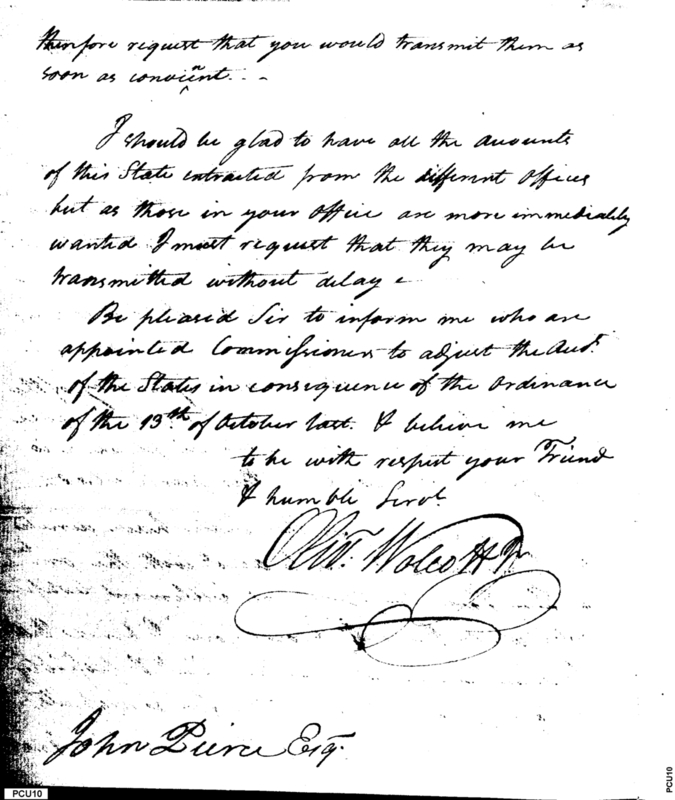 therefore request that you would transmit them as
soon as convenient. . -
I should be glad to have all the accounts
of this State extracted from the different Offices
but as those in your Office are more immediately
wanted I must request that they may be
transmitted without delay -
Be pleased Sir to inform me who are
appointed Commissioners to adjust the
of the States in consequence of the Ordinance
of the 13th of October last. & believe me
to be with respect your Friend
& humble Servt.
Olivr. Wolcott Jr
John Pierce Esqr.
PCU10
PCU10